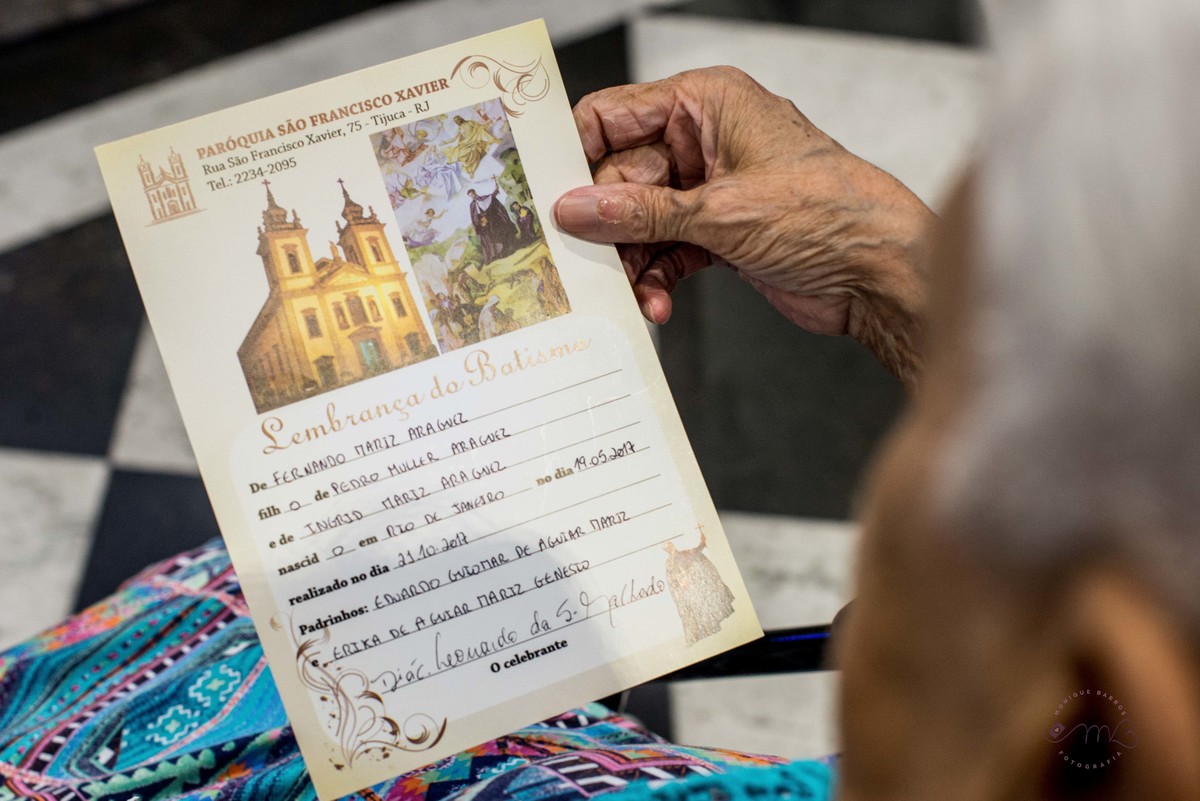 PARÓQUIA SÃO FRANCISCO XAVIER
Rua São Francisco Xavier, 75 - Tijuca - RJ
Tel.: 2234-2095
Lembrança do Batismo
De FERNANDO MARIZ ARAGUEZ
filh O de PEDRO MULLER ARAGUEZ
e de INGRID MARIZ ARAGUEZ
nascid O em RIO DE JANEIRO no dia 19.05.2017
realizado no dia 21.10.2017
Padrinhos: EDUARDO GUIOMAR DE AGUIAR MARIZ
e ERIKA DE AGUIAR MARIZ GENESIO
Diác. Leonardo da S. Machado
O celebrante
MONIQUE BARROS
FOTOGRAFIA